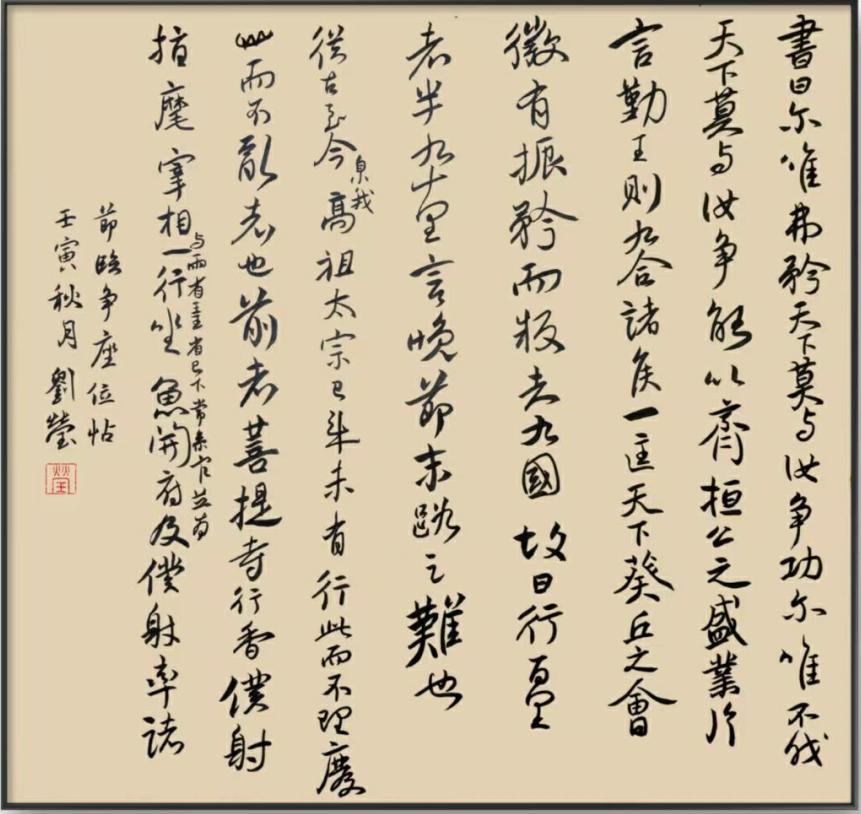 書曰尔唯弗矜天下莫与汝争功尔唯不伐
天下莫与汝争能以齊桓公之盛業片
言勤王则九合諸侯一匡天下葵丘之會
微有振矜而叛者九國故曰行百里
者半九十里言晚節末路之難也
從古至今泉我高祖太宗已来未有行此而不理廢
此而不亂者也前者菩提寺行香僕射
指麾宰相与两省臺省已下常参官並为一行坐魚開府及僕射率諸
節臨争座位帖
壬寅秋月劉瑩